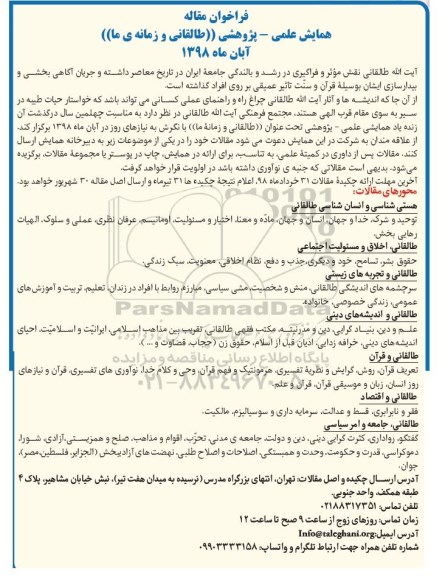 فراخوان مقاله
همایش علمی – پژوهشی ((طالقانی و زمانه ی ما))
آبان ماه ۱۳۹۸
آیت الله طالقانی نقش مؤثر و فراگیری در رشد و بالندگی جامعۀ ایران در تاریخ معاصر داشته و جریان آگاهی بخشی و
بیدارسازی ایشان بوسیلۀ قرآن و سنّت تاثیر عمیقی بر روی افراد گذاشته است.
از آن جا که اندیشه ها و آثار آیت الله طالقانی چراغ راه و راهنمای عملی کسانی می تواند باشد که خواستار حیات طیبه در
سیر به سوی مقام قرب الهی هستند، مجتمع فرهنگی آیت الله طالقانی در نظر دارد به مناسبت چهلمین سال درگذشت آن
زنده یاد همایشی علمی - پژوهشی تحت عنوان ((طالقانی و زمانۀ ما)) با نگرش به نیازهای روز در آبان ماه ۱۳۹۸ برگزار کند.
از علاقه مندان به شرکت در این همایش دعوت می شود مقالات خود را در یکی از موضوعات زیر به دبیرخانه همایش ارسال
کنند. مقالات پس از داوری در کمیتۀ علمی، به تناسب، برای ارائه در همایش، چاپ در پوستر یا مجموعۀ مقالات، برگزیده
می‌شود. بدیهی است مقالاتی که جنبه ی نوآوری داشته باشد در اولویت قرار خواهد گرفت.
آخرین مهلت ارائه چکیدۀ مقالات ۳۱ خردادماه ۹۸، اعلام نتیجۀ چکیده ها ۳۱ تیرماه و ارسال اصل مقاله ۳۰ شهریور خواهد بود.
محورهای مقالات:
هستی شناسی و انسان شناسی طالقانی
توحید و شرک، خدا و جهان، انسان و جهان، مادّه و معنا، اختیار و مسئولیت، اومانیسم، عرفان نظری، عملی و سلوک، الهیات
رهایی بخش.
طالقانی، اخلاق و مسئولیت اجتماعی
حقوق بشر، تسامح، خود و دیگری، جذب و دفع، نظام اخلاقی، معنویت، سبک زندگی.
طالقانی و تجربه های زیستی
سرچشمه های اندیشگی طالقانی، منش و شخصیت، مشی سیاسی، مبارزه، روابط با افراد در زندان، تعلیم، تربیت و آموزش‌های
عمومی، زندگی خصوصی، خانواده.
طالقانی و اندیشه‌های دینی
علم و دین، بنیاد گرایی، دین و مدرنیته، مکتب فقهی طالقانی، تقریب بین مذاهب اسلامی، ایرانیّت و اسلامیّت، احیای
اندیشه‌های دینی، خرافه زدایی، ادیان قبل از اسلام، حقوق زن (حجاب، قضاوت و ... ).
طالقانی و قرآن
تعریف قرآن، روش، گرایش و نظریۀ تفسیری، هرمونتیک و فهم قرآن، وحی و کلام خدا، نوآوری های تفسیری، قرآن و نیازهای
روز انسان، زبان و موسیقی قرآن، قرآن و علم.
طالقانی و اقتصاد
فقر و نابرابری، قسط و عدالت، سرمایه داری و سوسیالیزم، مالکیت.
طالقانی، جامعه و امر سیاسی
گفتگو، رواداری، کثرت گرایی دینی، دین و دولت، جامعه ی مدنی، تحزّب، اقوام و مذاهب، صلح و همزیستی، آزادی، شورا،
دموکراسی، قدرت و حکومت، وحدت و همبستگی، اصلاحات و اصلاح طلبی، نهضت های آزادیبخش (الجزایر، فلسطین، مصر)،
جوان.
آدرس ارسال چکیده و اصل مقالات: تهران، انتهای بزرگراه مدرس (نرسیده به میدان هفت تیر)، نبش خیابان مشاهیر، پلاک ۴
طبقه همکف، واحد جنوبی.
تلفن تماس: ۰۲۱۸۸۳۱۷۳۵۱
زمان تماس: روزهای زوج از ساعت ۹ صبح تا ساعت ۱۲
آدرس ایمیل: Info@taleghani.org
شماره تلفن همراه جهت ارتباط تلگرام و واتساپ: ۰۹۹۰۳۳۳۳۱۵۸
ParsNamadData
پایگاه اطلاع رسانی مناقصه و مزایده
۰۲۱-۸۸۳۴۹۶۷۰